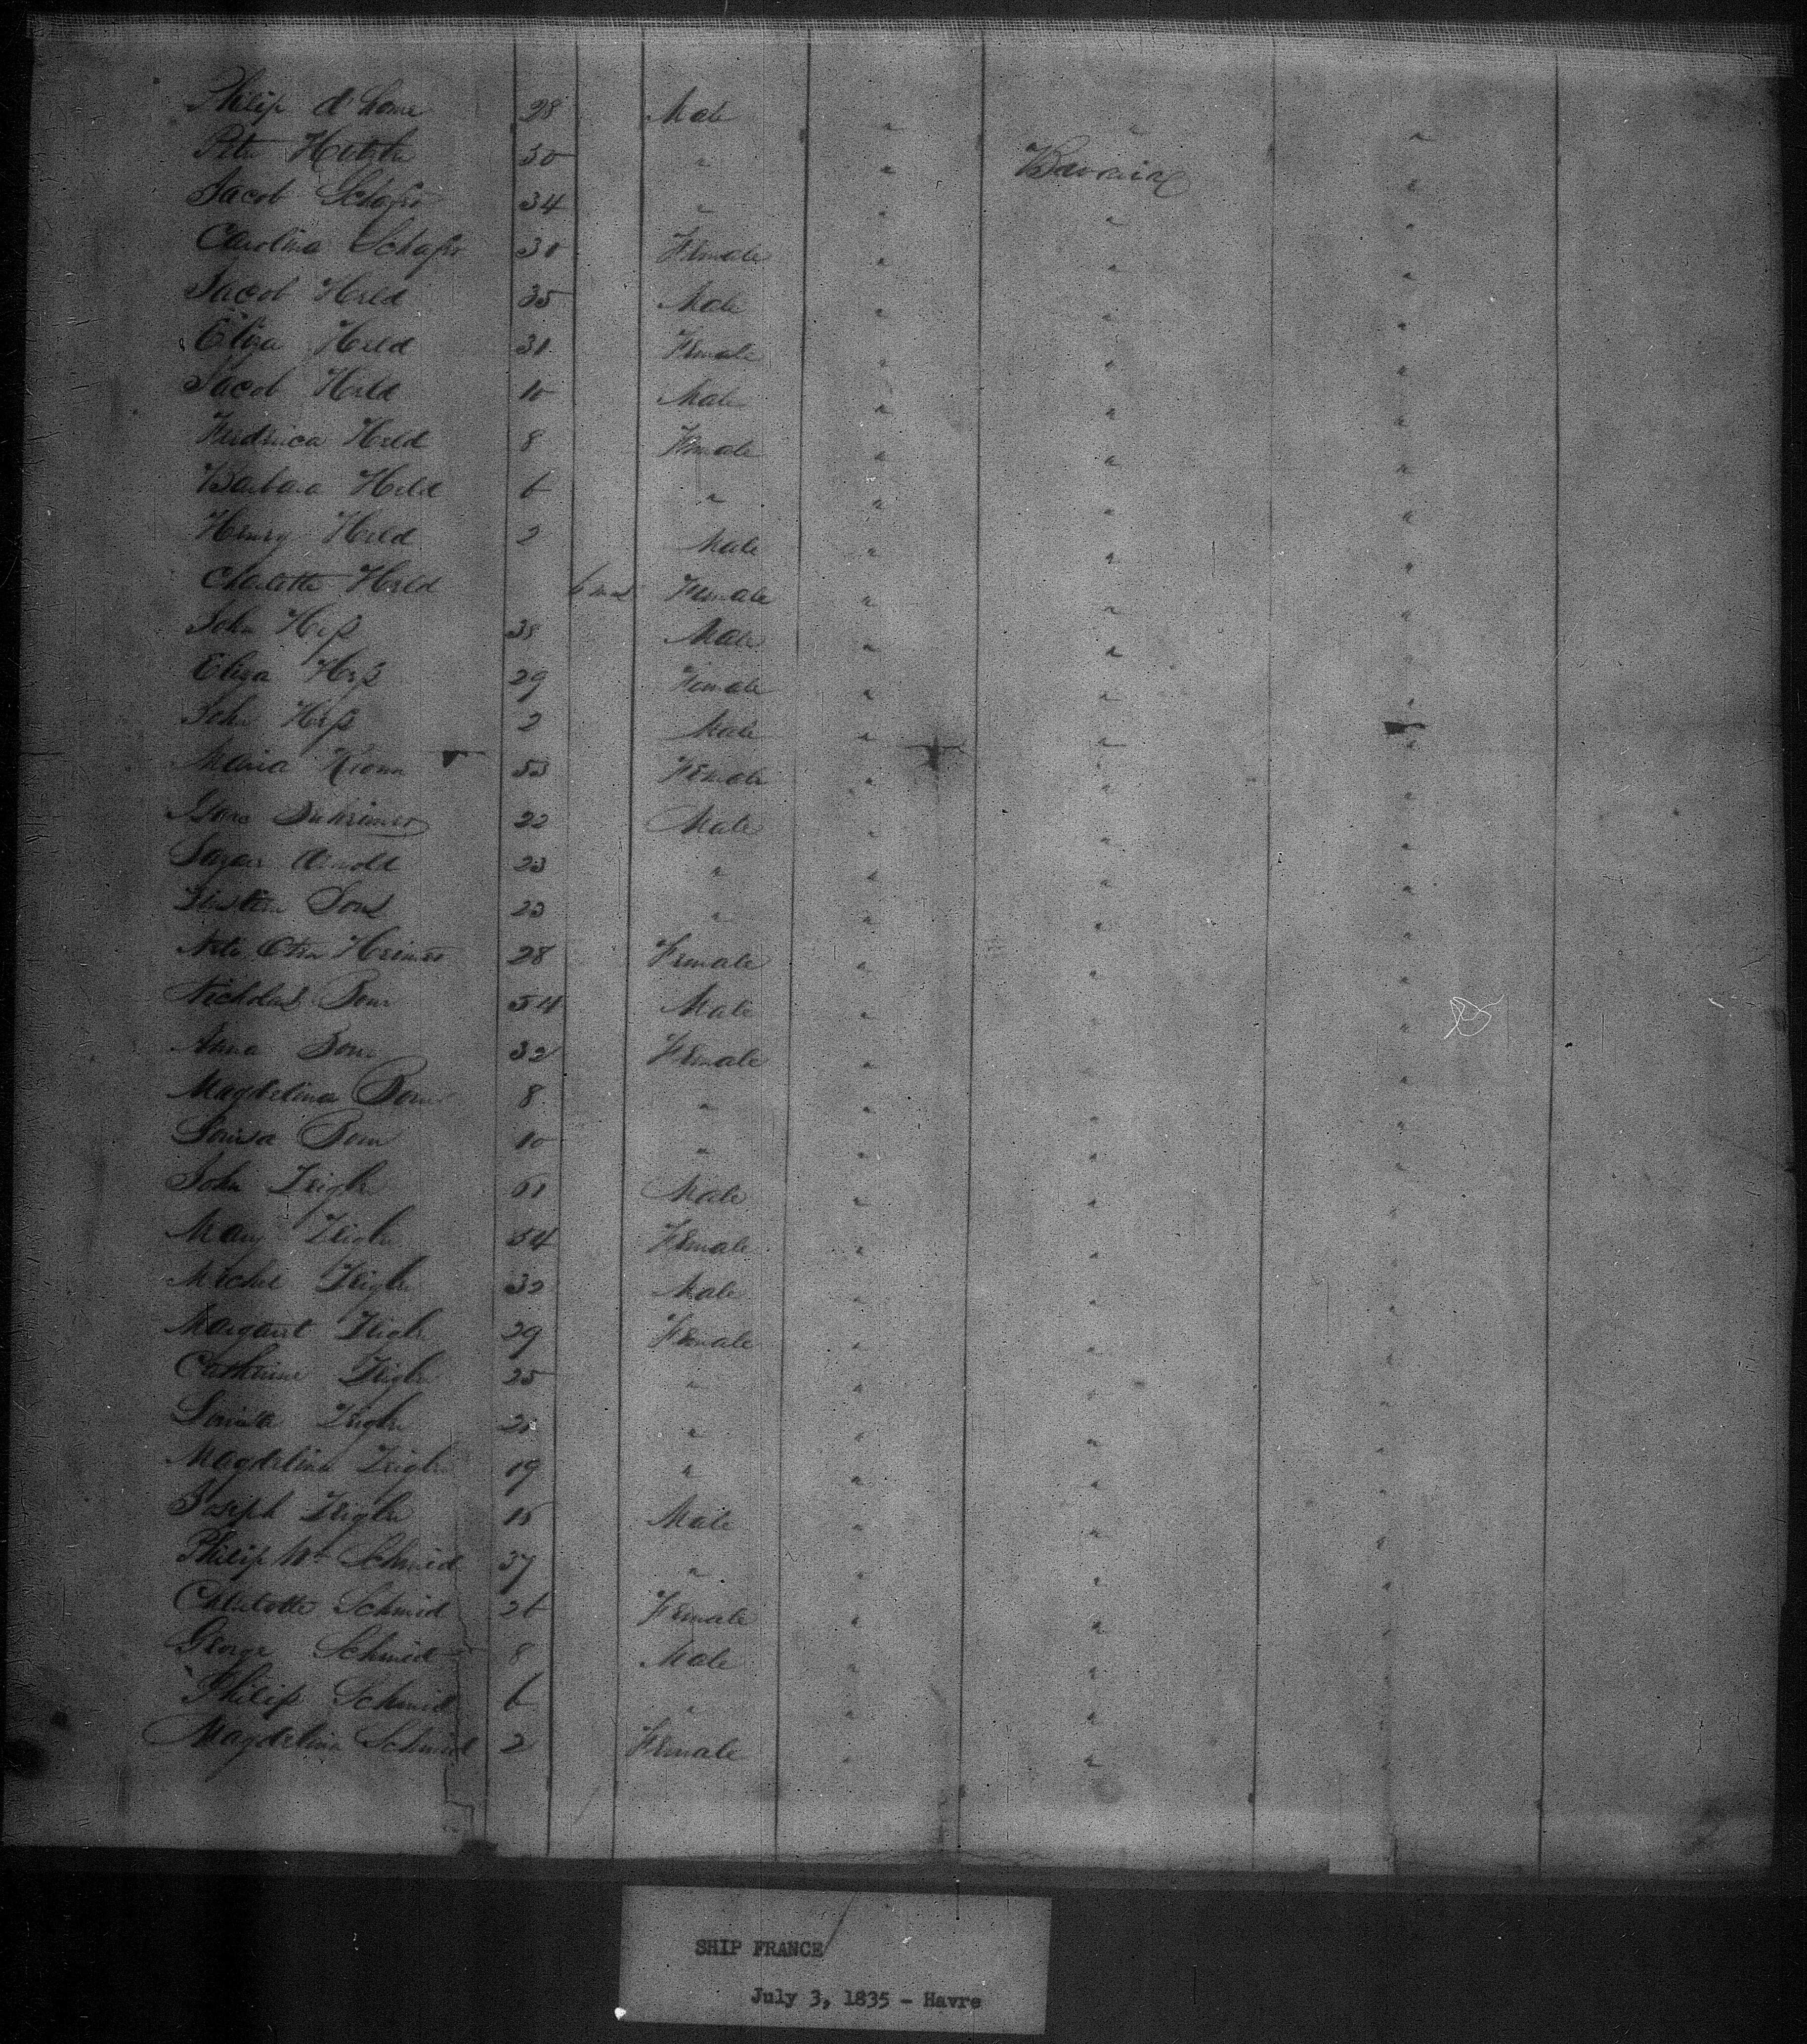 Philip d'home 28 Male " " "
Peter 30 " " Bavaria "
Jacob Schafer 34 " " " "
Carolina Schafer 30 Female " " "
Jacob Held 35 Male " " "
Eliza Held 31 Female " " "
Jacob Held 10 Male " " "
Fredrica Held 8 Female " " "
Barbara Held 6 " " " "
Henry Held 2 Male " " "
Charlotte Held 6 mos Female " " "
John Heß 38 Male " " "
Eliza Heß 29 Female " " "
John Heß 2 Male " " "
Maria 53 Female " " "
22 Male " " "
Arnold 23 " " " "
23 " " " "
28 Female " " "
Nicholas 54 Male " " "
Anna 32 Female " " "
Magdelina 8 " " " "
Louisa 10 " " " "
John Zeigler 61 Male " " "
Mary Zeigler 54 Female " " "
Michel Zeigler 32 Male " " "
Margaret Zeigler 29 Female " " "
Cathrine Zeigler 25 " " " "
Louisa Zeigler " " " "
Magdelina Zeigler 19 " " " "
Joseph Zeigler 15 Male " " "
Philip Schmid 37 " " " "
Charlotte Schmid 26 Female " " "
George Schmid 8 Male " " "
Philip Schmid 6 " " " "
Magdelina Schmid 2 Female " " "
SHIP FRANCE
July 3, 1835 - Havre